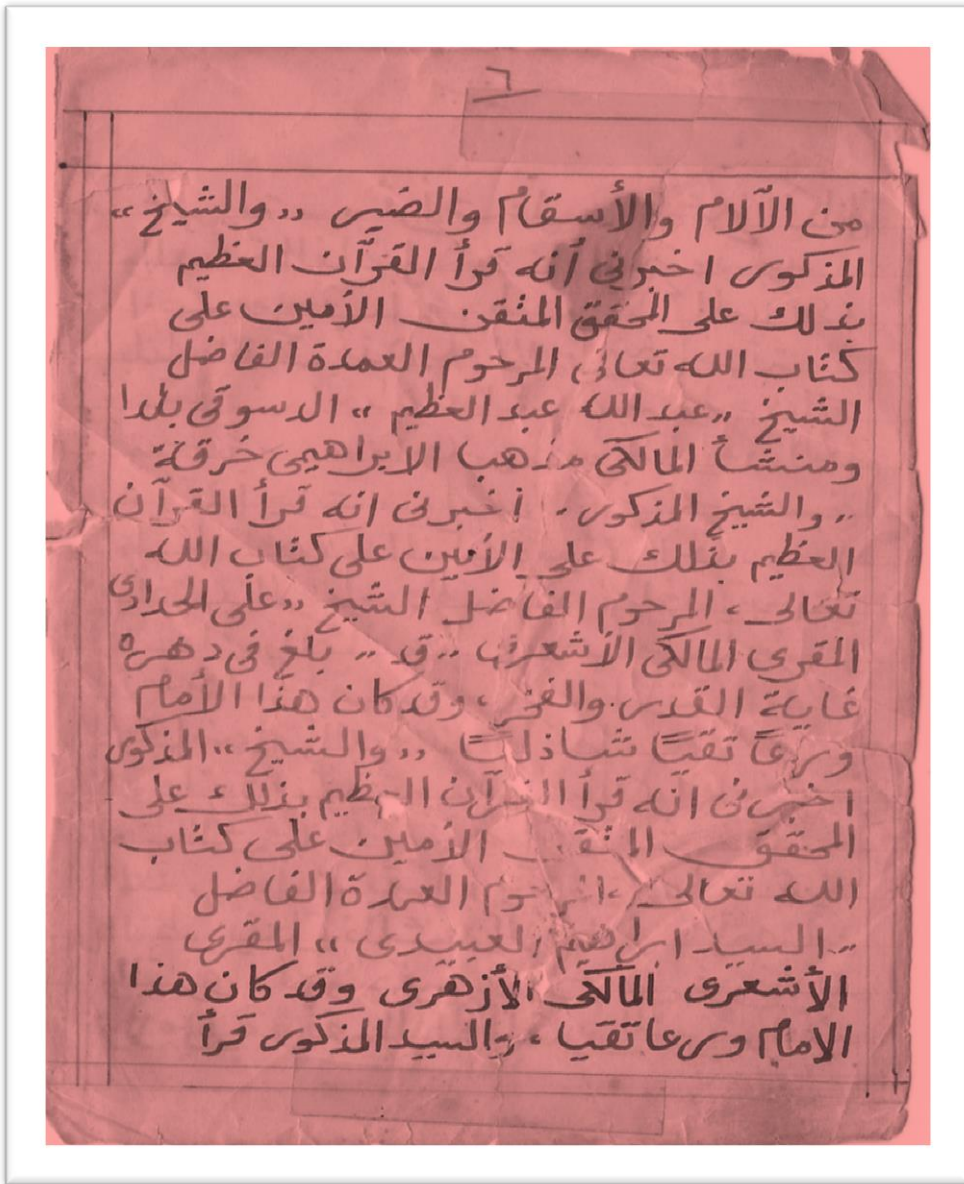 ٦
من الآلام والأسقام والضير ,, والشيخ ,,
المذكور اخبرنى أنه قرأ القرآن العظيم
بذلك على المحقق المتقن الأمين على
كتاب الله تعالى المرحوم العمدة الفاضل
الشيخ ,,عبد الله عبد العظيم ,, الدسوقى بلدا
ومنشأ المالكى مذهبا الابراهيمى خرقة
,, والشيخ المذكور ,, أخبرنى انه قرأ القرآن
العظيم بذلك على الأمين على كتاب الله
تعالى ، المرحوم الفاضل الشيخ ,,على الحدادى
المقرى المالكى الأشعرى ,,قد ,, بلغ فى دهره
غاية القدر والفخر ، وقد كان هذا الأمام
ورعًا تقيًا شاذليًا ,, والشيخ ,, المذكور
اخبرنى انه قرأ القرآن العظيم بذلك على
المحقق المتقن الأمين على كتاب
الله تعالى ، المرحوم العمدة الفاضل
,,السيد ابراهيم العبيدى ,, المقرى
الأشعرى المالكى الأزهرى وقد كان هذا
الامام ورعا تقيا ، والسيد المذكور قرأ